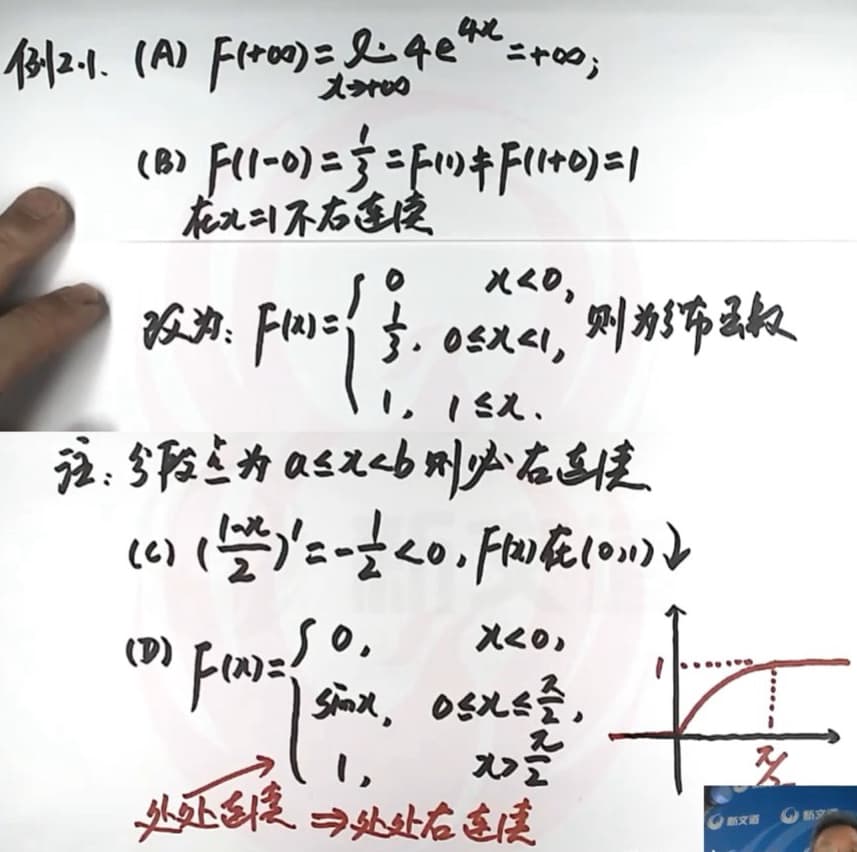 例2.1. (A) F(+∞)=lim 4e^{4x}=+∞;
x→+∞
(B) F(1-0)=1/3=F(1)≠F(1+0)=1
在x=1不右连续
改为: F(x)={ 0 x<0,
1/3, 0≤x<1, 则为分布函数
1, 1≤x.
注: 分段点为 a≤x<b 则必右连续
(C) ((1-x)/2)'=-1/2<0, F(x)在(0,1)↓
(D) F(x)={ 0, x<0,
sinx, 0≤x≤π/2,
1, x>π/2
处处连续 ⇒处处右连续
1
π/2
新文道
新文